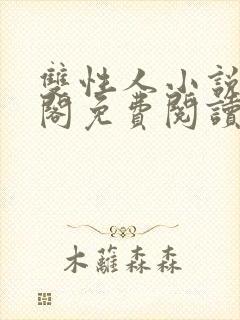 雙性人小說
閣免費閱讀
木蘿森森